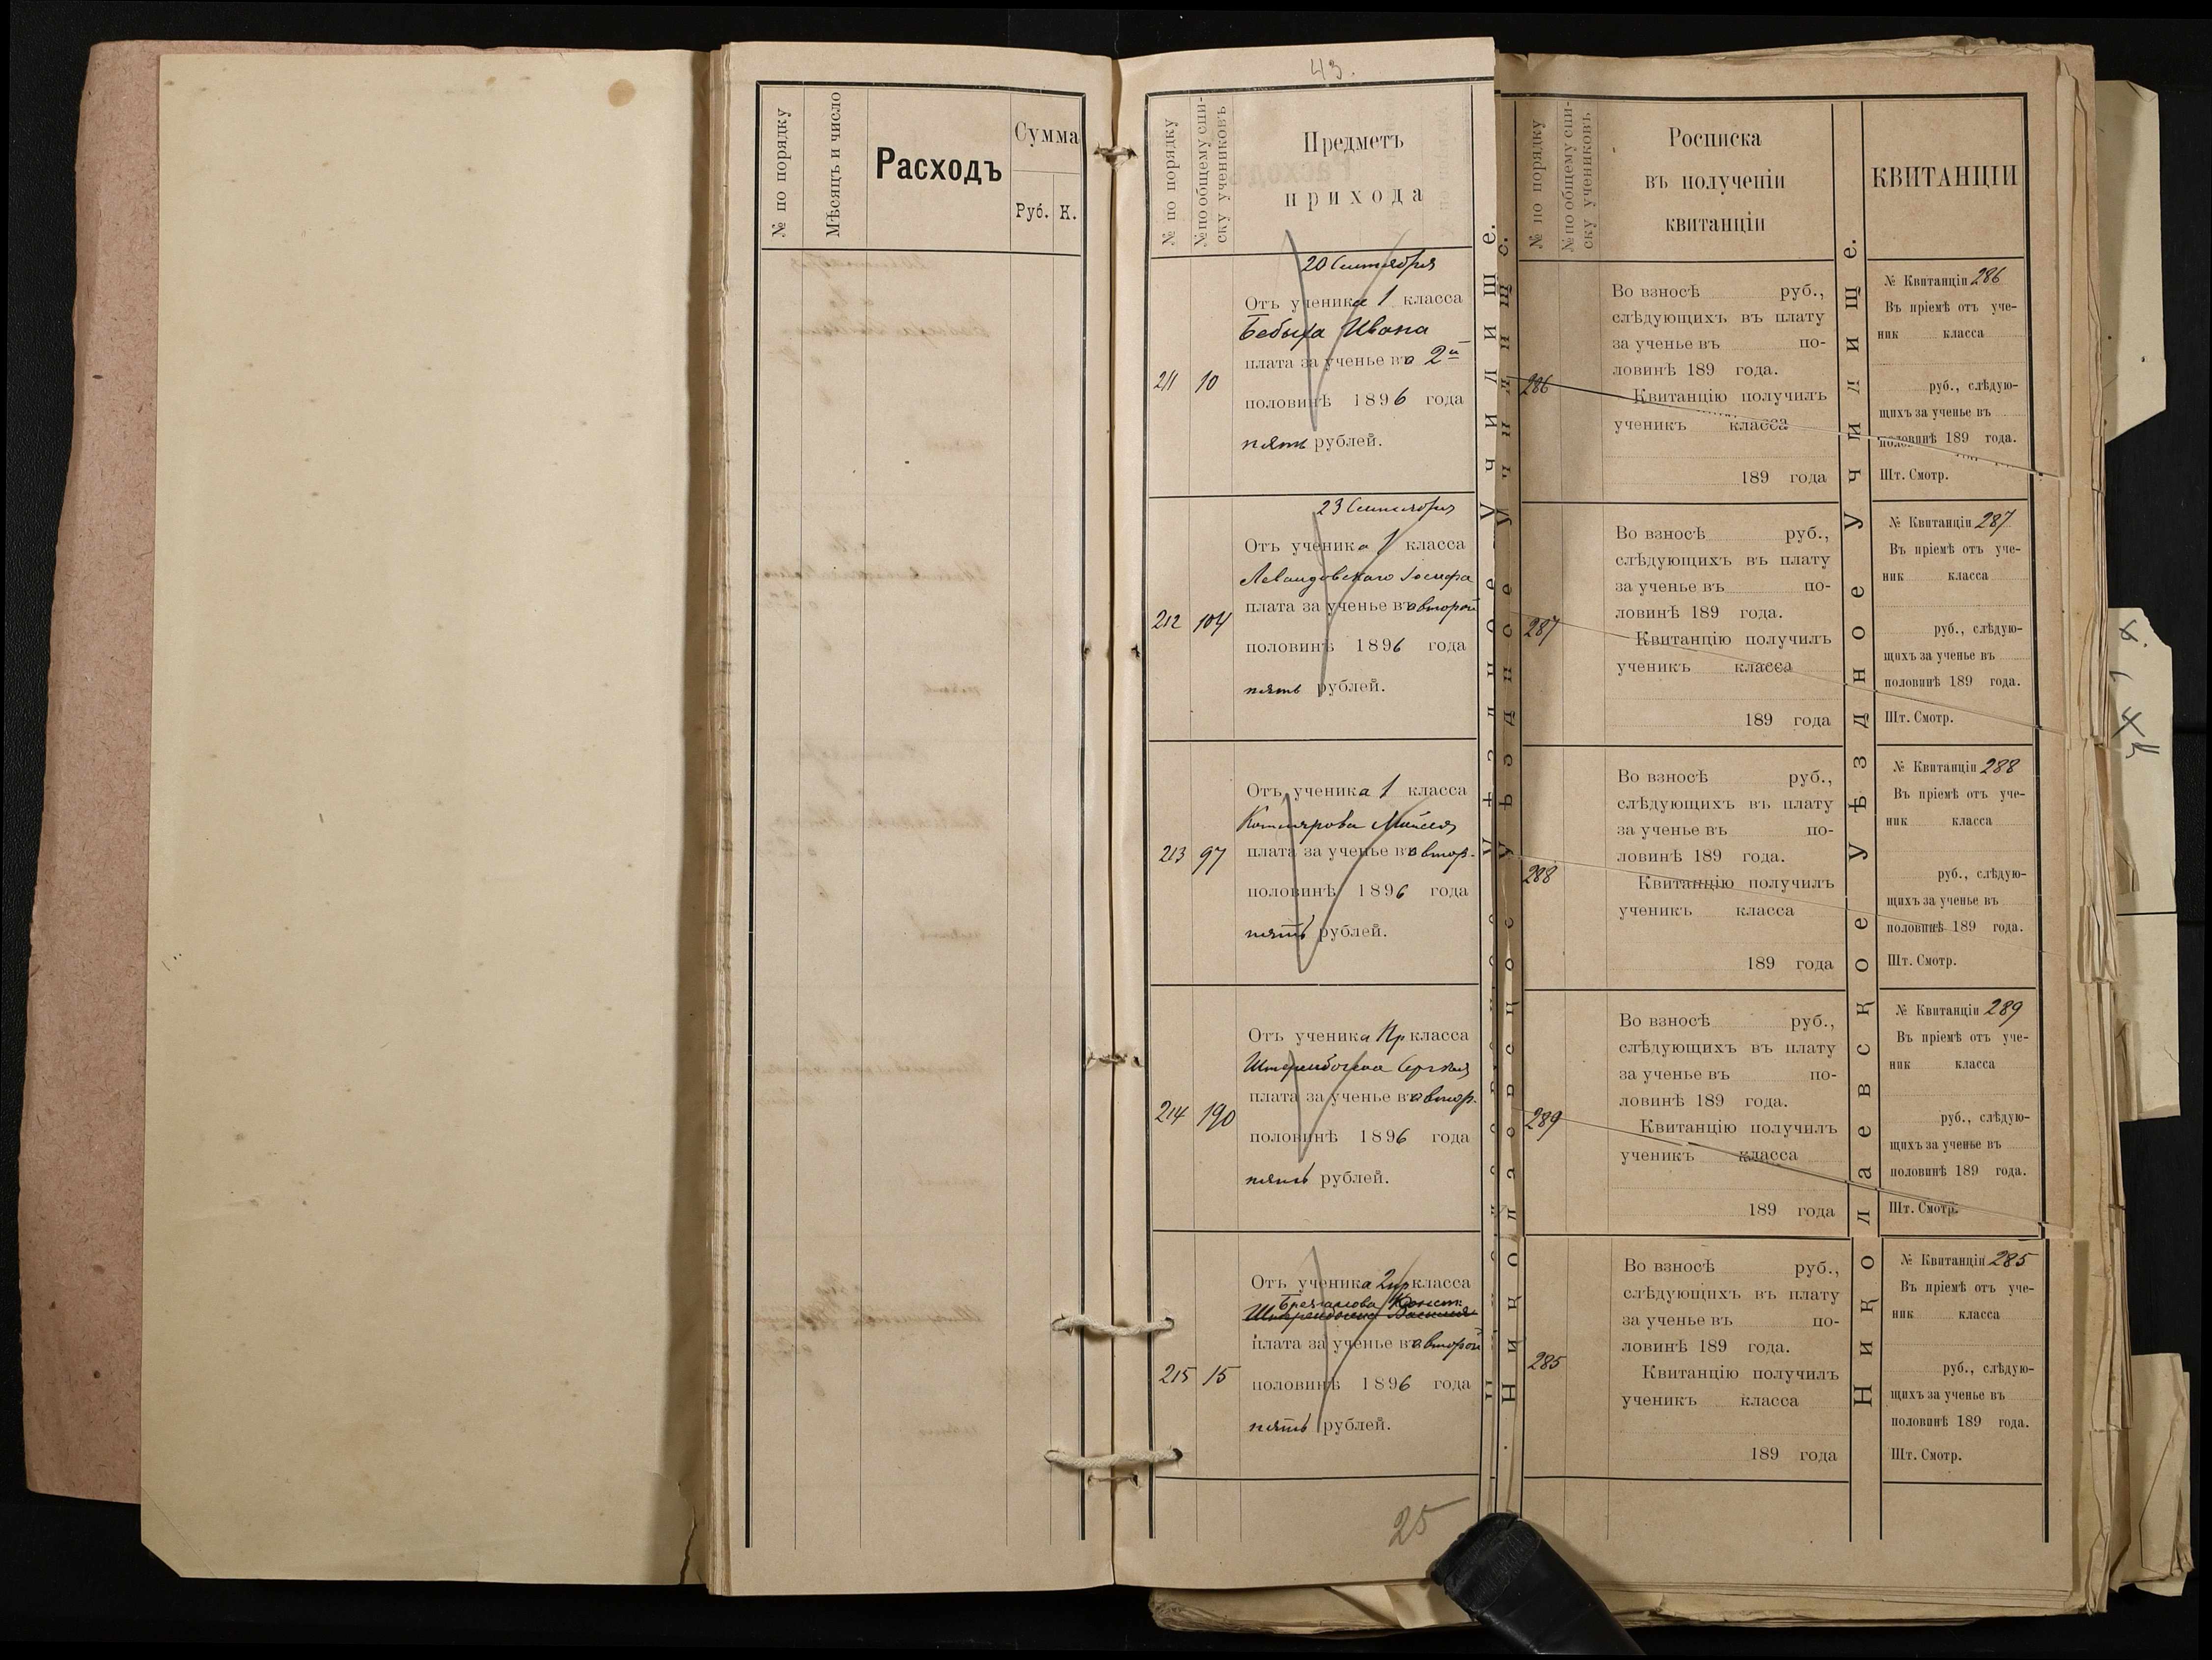 № по порядку
Мѣсяцъ и число
Расходъ
Сумма
Руб. К.
43.
№ по порядку
№ по общему спи-
ску учениковъ
Предметъ
прихода
20 Сентября
Отъ ученика 1 класса
Бебыха Ивана
плата за ученье во 2й
211 10
половинѣ 1896 года
пять рублей.
23 Сентября
Отъ ученика 1 класса
Левандовскаго Іосифа
плата за ученье во второй
212 104
половинѣ 1896 года
пять рублей.
Отъ ученика 1 класса
Котлярова Моисея
плата за ученье во втор.
213 97
половинѣ 1896 года
пять рублей.
Отъ ученика Пр класса
Сергея
плата за ученье во втор.
214 190
половинѣ 1896 года
пять рублей.
Отъ ученика 2 класса
Конст.
плата за ученье во второй
215 15
половинѣ 1896 года
пять рублей.
25
№ по порядку
№ по общему спи-
ску учениковъ
Росписка
въ полученіи
квитанціи
286
Во взносѣ руб.,
слѣдующихъ въ плату
за ученье въ по-
ловинѣ 189 года.
Квитанцію получилъ
ученикъ класса
189 года
287
Во взносѣ руб.,
слѣдующихъ въ плату
за ученье въ по-
ловинѣ 189 года.
Квитанцію получилъ
ученикъ класса
189 года
288
Во взносѣ руб.,
слѣдующихъ въ плату
за ученье въ по-
ловинѣ 189 года.
Квитанцію получилъ
ученикъ класса
189 года
289
Во взносѣ руб.,
слѣдующихъ въ плату
за ученье въ по-
ловинѣ 189 года.
Квитанцію получилъ
ученикъ класса
189 года
285
Во взносѣ руб.,
слѣдующихъ въ плату
за ученье въ по-
ловинѣ 189 года.
Квитанцію получилъ
ученикъ класса
189 года
Николаевское Уѣздное Училище.
КВИТАНЦІИ
№ Квитанціи 286
Въ пріемѣ отъ уче-
ник класса
руб., слѣдую-
щихъ за ученье въ
половинѣ 189 года.
Шт. Смотр.
№ Квитанціи 287
Въ пріемѣ отъ уче-
ник класса
руб., слѣдую-
щихъ за ученье въ
половинѣ 189 года.
Шт. Смотр.
№ Квитанціи 288
Въ пріемѣ отъ уче-
ник класса
руб., слѣдую-
щихъ за ученье въ
половинѣ 189 года.
Шт. Смотр.
№ Квитанціи 289
Въ пріемѣ отъ уче-
ник класса
руб., слѣдую-
щихъ за ученье въ
половинѣ 189 года.
Шт. Смотр.
№ Квитанціи 285
Въ пріемѣ отъ уче-
ник класса
руб., слѣдую-
щихъ за ученье въ
половинѣ 189 года.
Шт. Смотр.